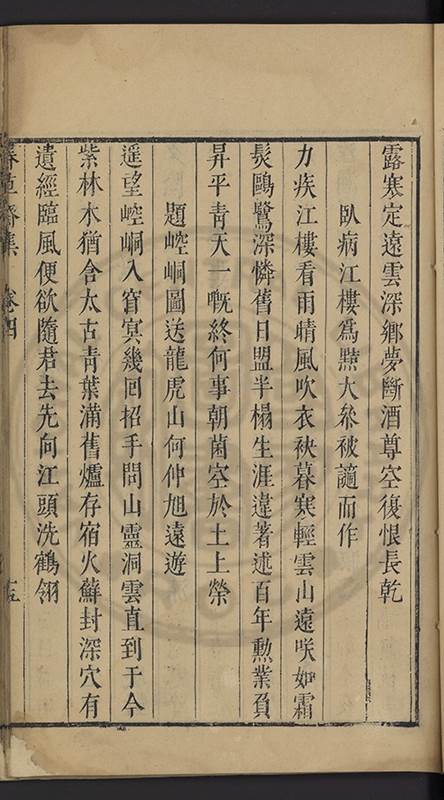 露寒定遠雲深鄉夢斷酒尊空復恨長乾
臥病江樓爲㸃大參被讒而作
力疾江樓看雨晴風吹衣袂暮寒輕雲山遠咲如霜
髮鷗鷺深憐舊日盟半榻生涯違著述百年勲業負
昇平青天一嘅終何事朝菌空於土上榮
題崆峒圖送龍虎山何仲旭遠遊
遥望崆峒入窅冥幾回招手問山靈洞雲直到于今
紫林木猶含太古青葉滿舊爐存宿火蘚封深穴有
遺經臨風便欲隨君去先向江頭洗鶴翎
齋集 卷四